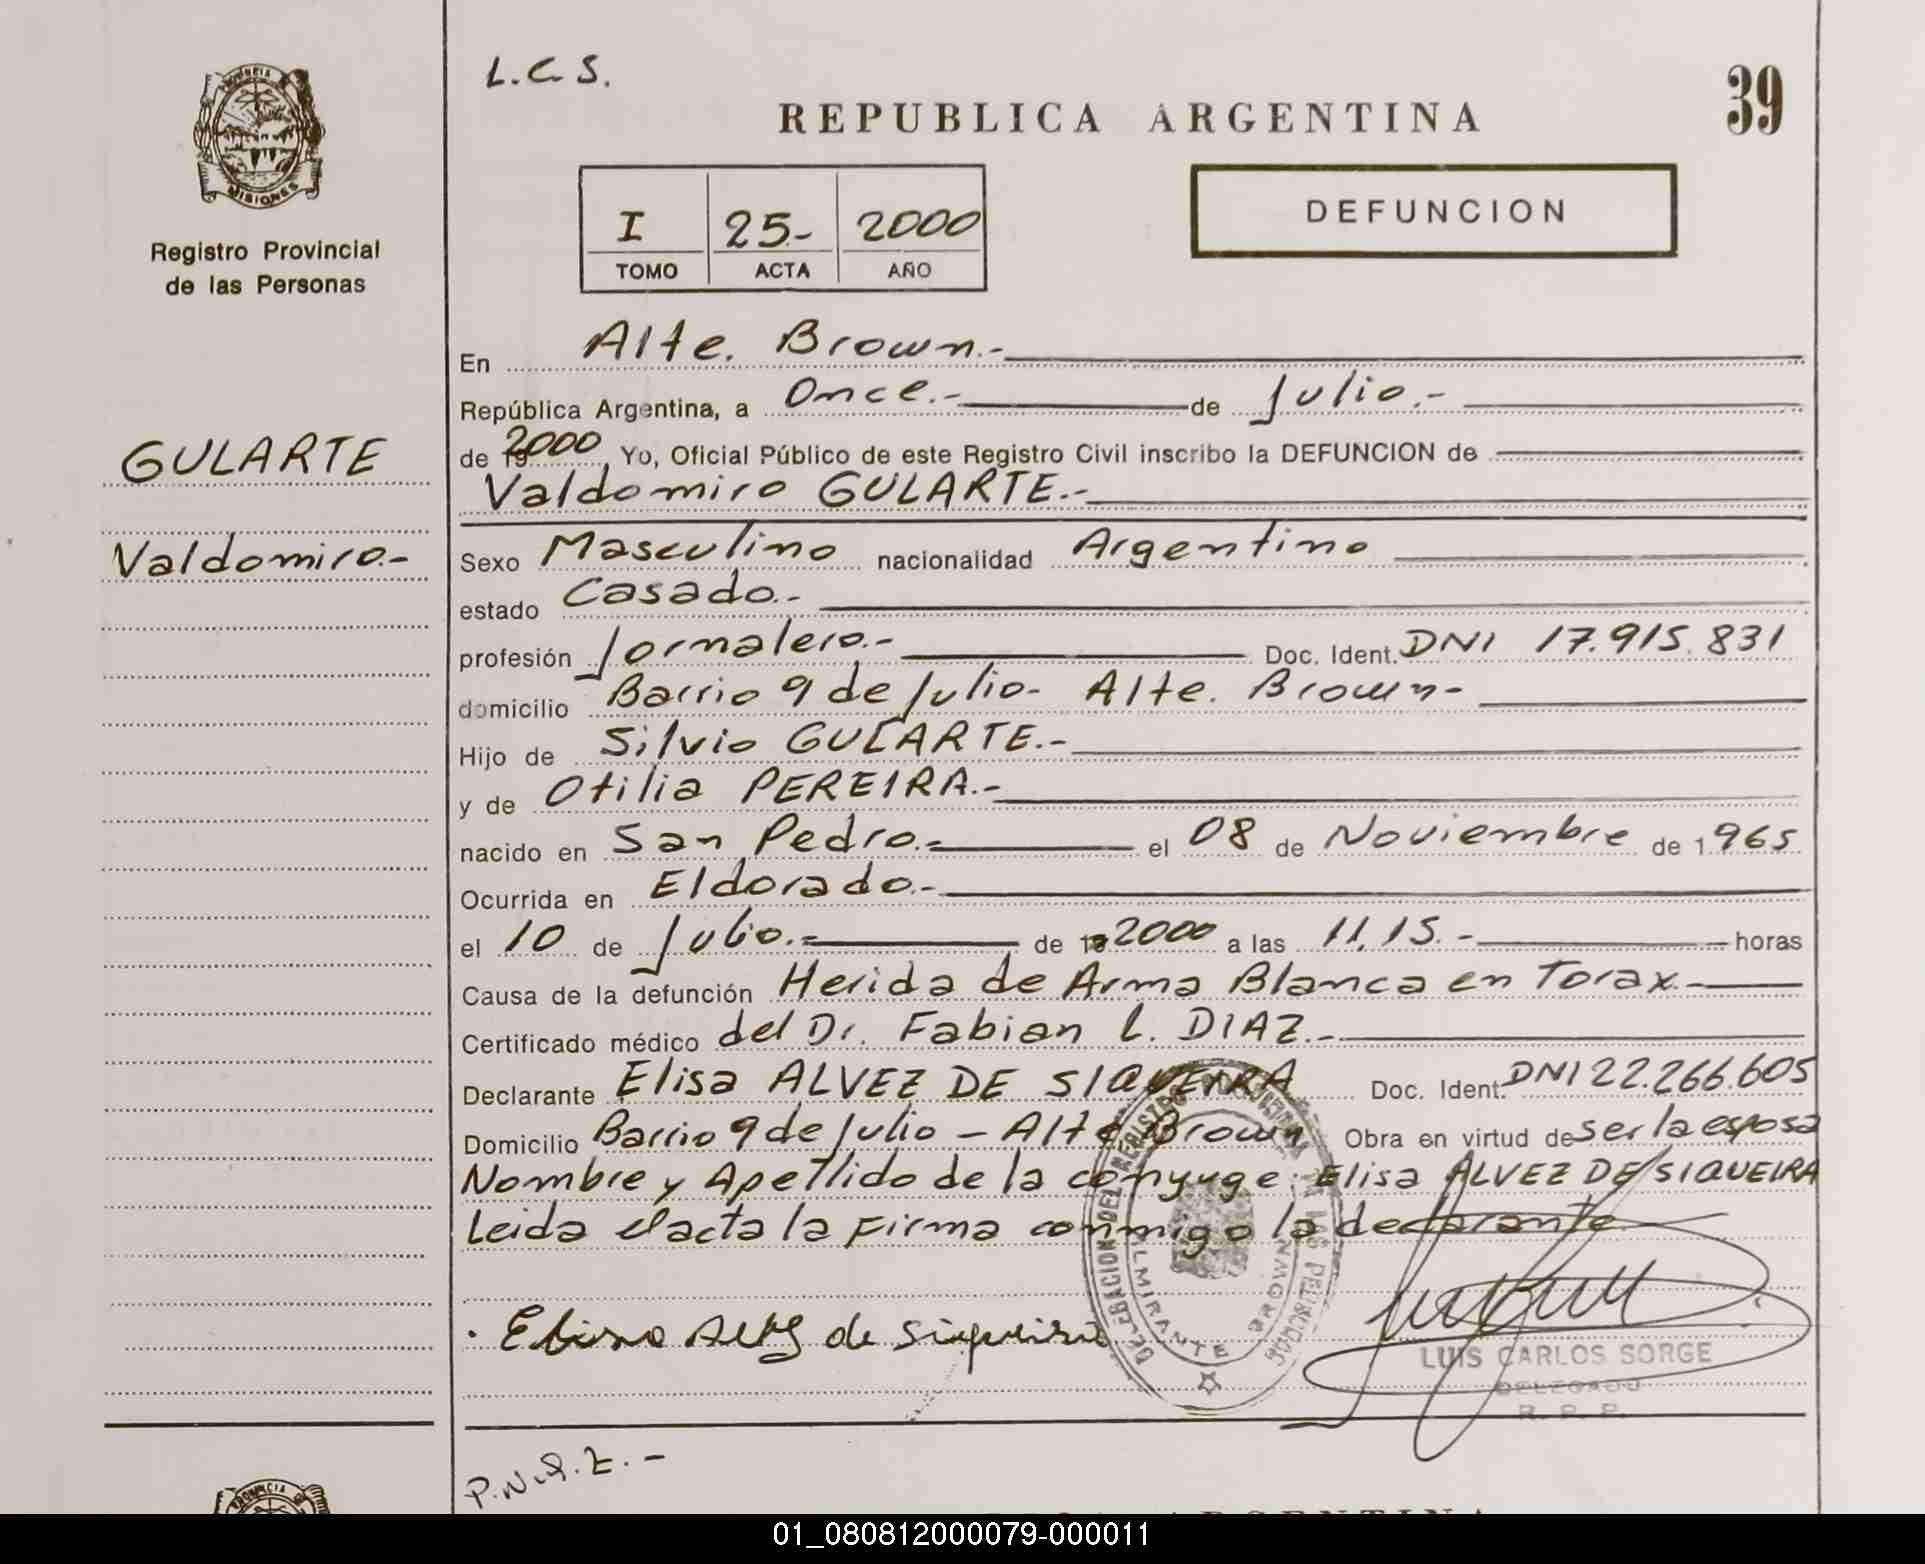 L.C.S.
39
REPUBLICA ARGENTINA
PROVINCIA DE
MISIONES
Registro Provincial
de las Personas
I 25.- 2000
TOMO ACTA AÑO
DEFUNCION
GULARTE
Valdomiro.-
En Alte. Brown.-
República Argentina, a Once.- de Julio.-
de 2000 Yo, Oficial Público de este Registro Civil inscribo la DEFUNCION de
Valdomiro GULARTE.-
Sexo Masculino nacionalidad Argentino
estado Casado.-
profesión Jornalero.- Doc. Ident. DNI 17.915.831
domicilio Barrio 9 de Julio- Alte. Brown-
Hijo de Silvio GULARTE.-
y de Otilia PEREIRA.-
nacido en San Pedro.- el 08 de Noviembre de 1965
Ocurrida en Eldorado.-
el 10 de Julio.- de 2000 a las 11,15.- horas
Causa de la defunción Herida de Arma Blanca en Torax.-
Certificado médico del Dr. Fabian L. DIAZ.-
Declarante Elisa ALVEZ DE SIQUEIRA Doc. Ident. DNI 22.266.605
Domicilio Barrio 9 de Julio - Alte. Brown Obra en virtud de ser la esposa
Nombre y Apellido de la conyuge: Elisa ALVEZ DE SIQUEIRA
Leida el acta la Firma conmigo la declarante
DELEGACION DEL REGISTRO PROVINCIAL DE LAS PERSONAS
ALMIRANTE BROWN
LUIS CARLOS SORGE
DELEGADO
R. P. P.
ARGENTINA
01_080812000079-000011